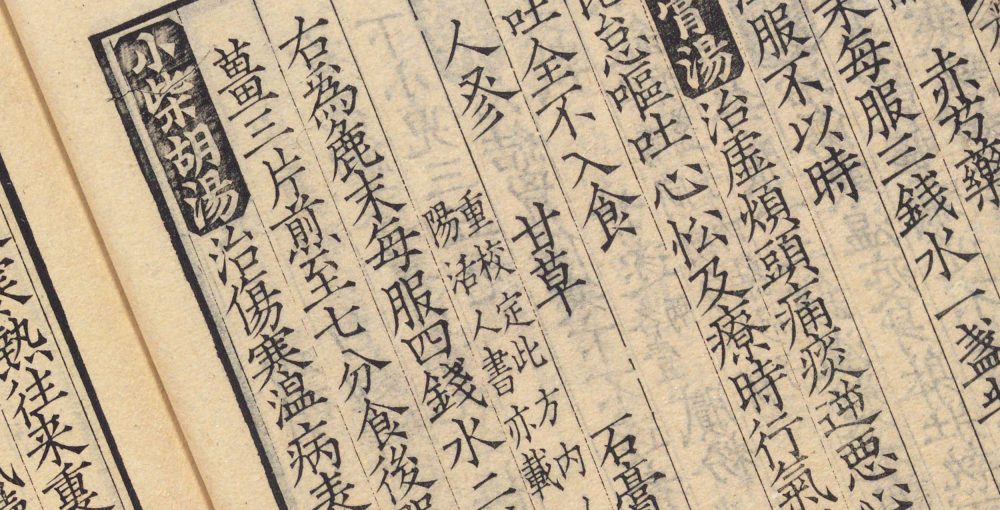 赤芍藥
末每服三銭水一盞
服不以時
膏湯治虛煩頭痛痰逆悪心
怠嘔吐心忪及療時行氣
吐全不入食
人參 甘草 石膏
重校定此方内
陽活人書亦載
右為麁末每服四錢水二
薑三片煎至七分食後服
小柴胡湯治傷寒温病表
寒熱往来重